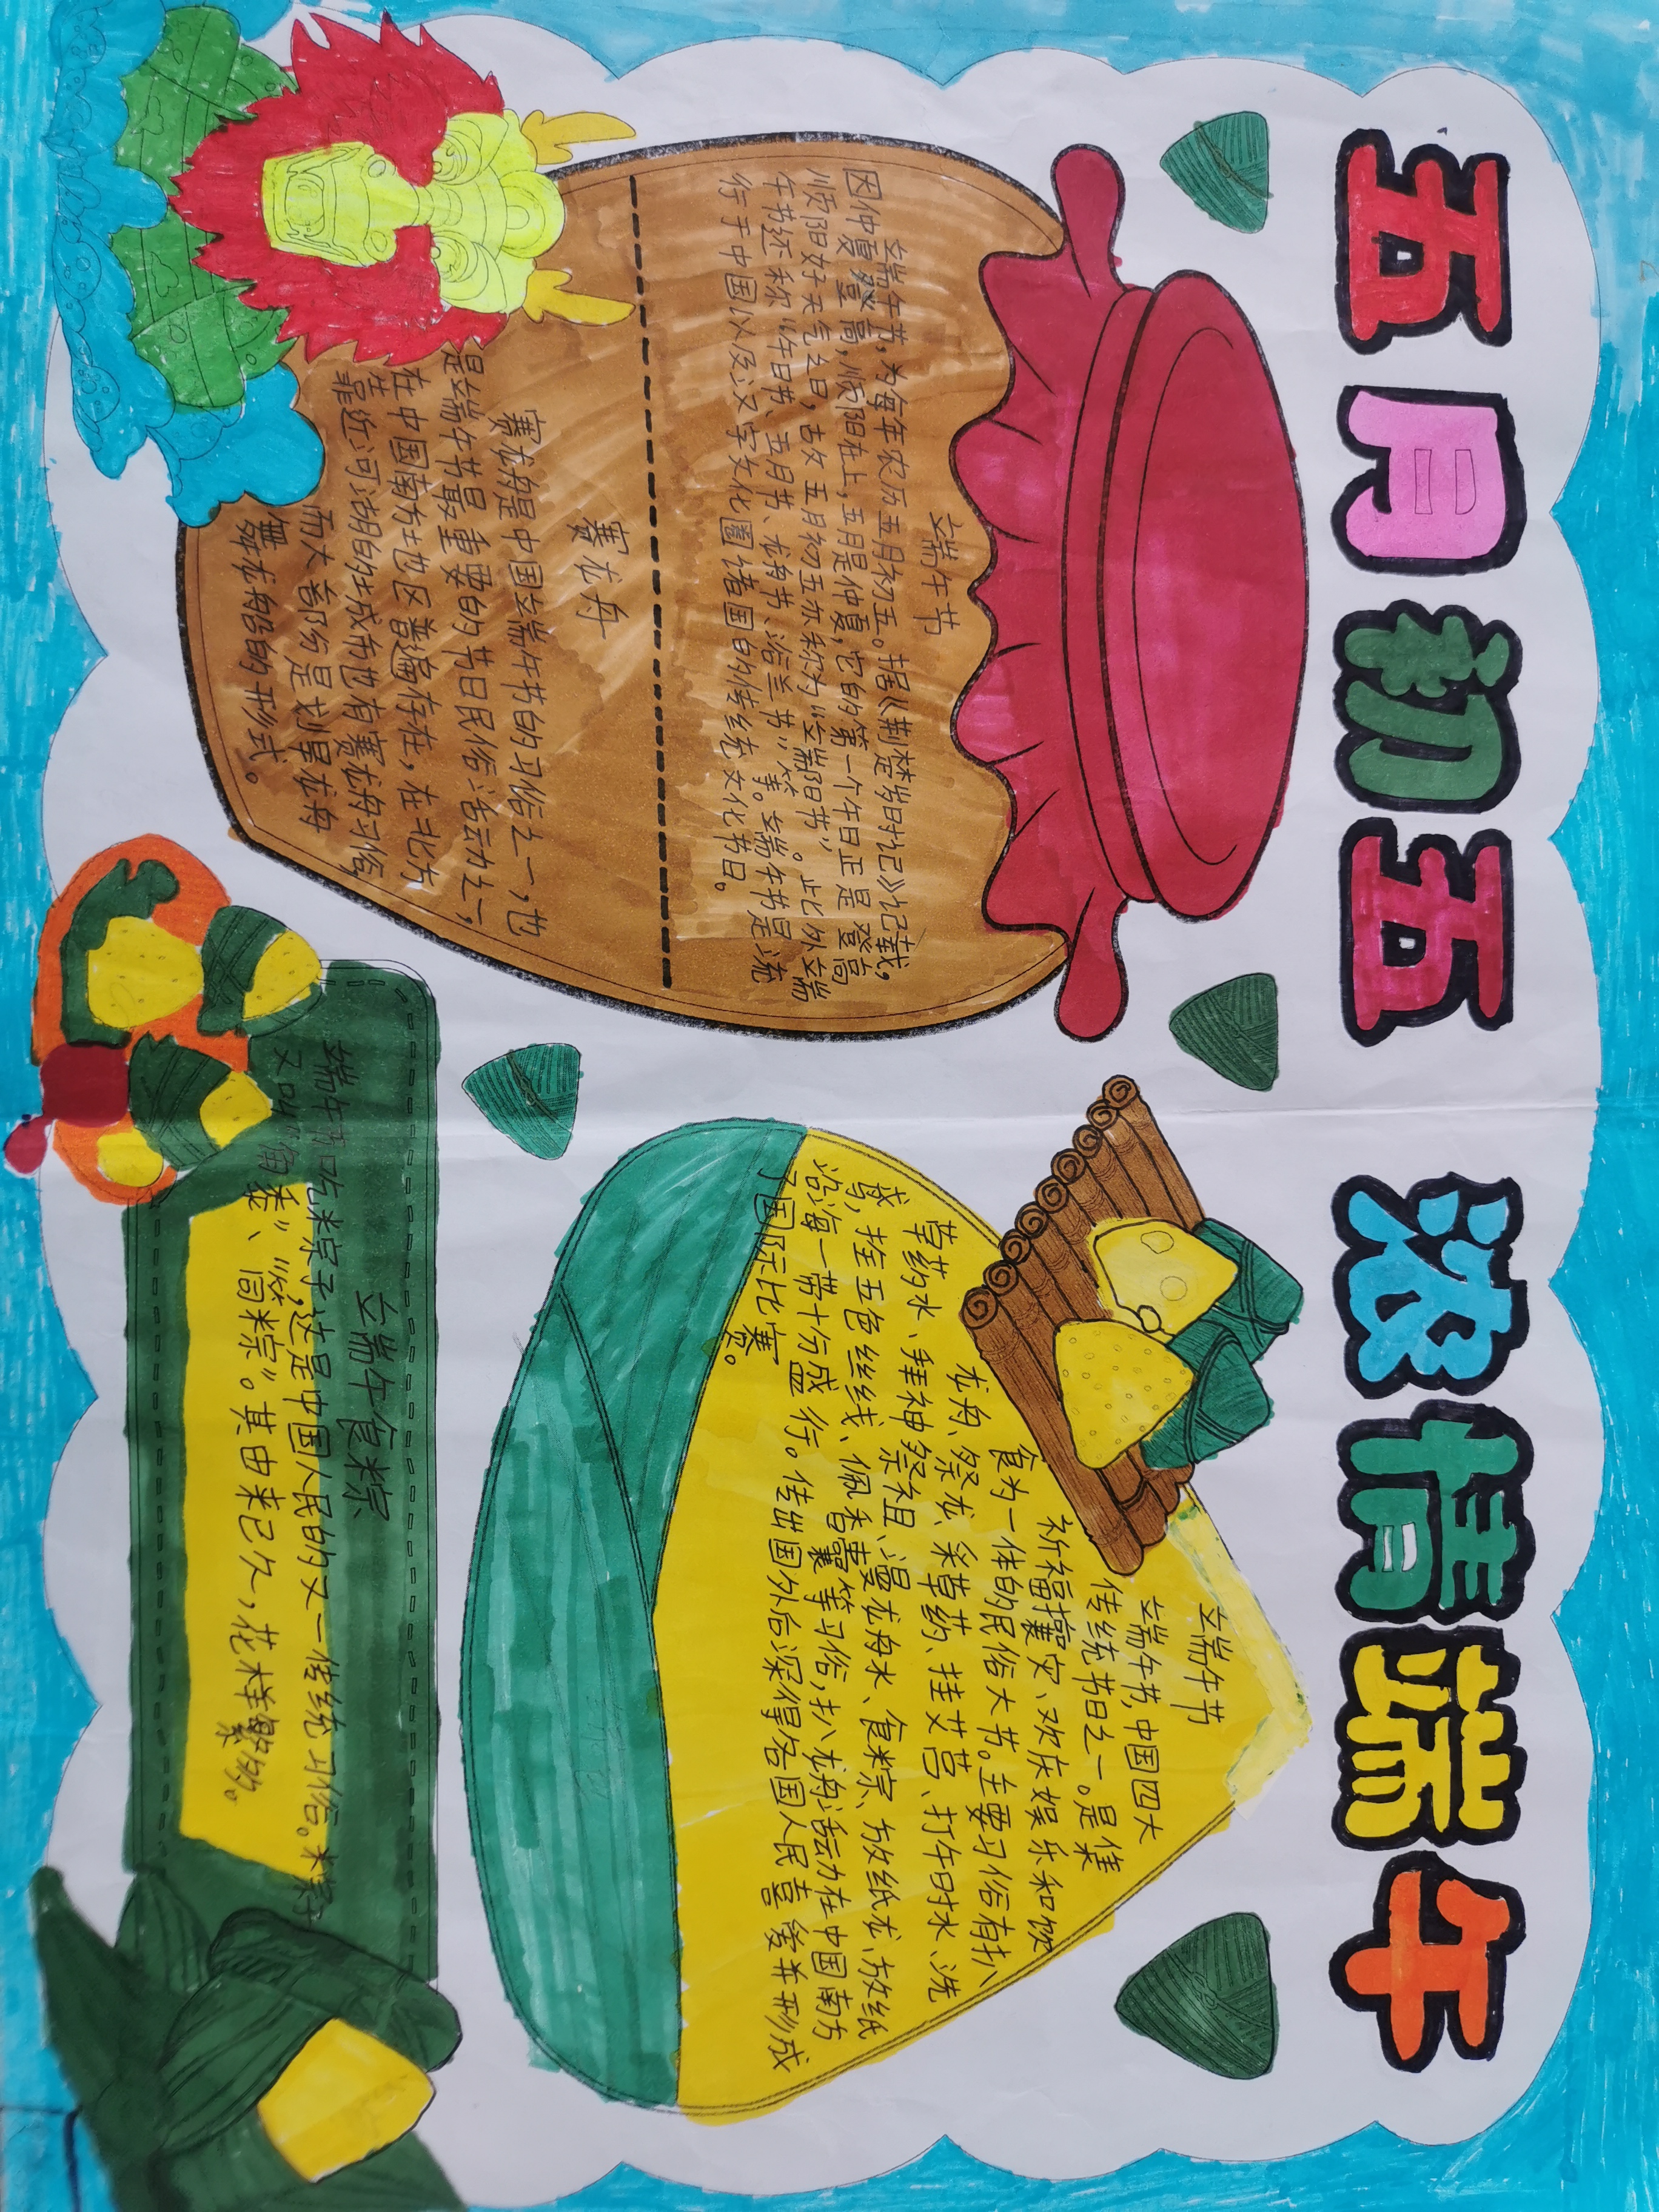 五月初五 浓情端午
端午节
端午节,为每年农历五月初五。据《荆楚岁时记》记载,
因仲夏登高,顺阳在上,五月是仲夏,它的第一个午日正是登高
顺阳好天气之日,故五月初五亦称为“端阳节”。此外端
午节还称“午日节、五月节、龙舟节、浴兰节”等。端午节是流
行于中国以及汉字文化圈诸国的传统文化节日。
赛龙舟
赛龙舟是中国端午节的习俗之一,也
是端午节最重要的节日民俗活动之一,
在中国南方地区普遍存在,在北方
靠近河湖的城市也有赛龙舟习俗
而大部分是划旱龙舟
舞龙船的形式。
端午节
端午节,中国四大
传统节日之一。是集
祈福攘灾、欢庆娱乐和饮
食为一体的民俗大节。主要习俗有扒
龙舟、祭龙、采草药、挂艾菖、打午时水、洗
草药水、拜神祭祖、浸龙舟水、食粽、放纸龙、放纸
鸢,拴五色丝线、佩香囊等习俗,扒龙舟活动在中国南方
沿海一带十分盛行。传出国外后深得各国人民喜爱并形成
了国际比赛。
端午食粽
端午节吃粽子,这是中国人民的又一传统习俗。粽子
又叫“角黍”、“筒粽”。其由来已久,花样繁多。